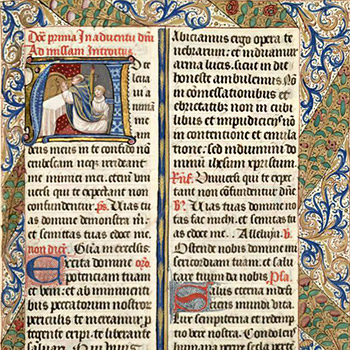 prima In aduentu dñi
Ad missam Introitus
A
meus in te confido non
erubescam neqz irrideant me
inimici mei. etenim vniu
uersi qui te expectant non
confundentur. ps Vias tuas
domine demonstra m
et semitas tuas edoce me.
non dicit. Gl'ia in excelsis.
Excita domine oro
potenciam tuam
et veni vt ab imminenti
bus peccatorum nostrorum
periculis te mereamur p
tegente eripi. te liberante
saluari
Abiciamus ergo opera te
nebrarum. et induamur
arma lucis. sicut in die
honeste ambulemus Non
in comessationibus et
ebrietatibus non in cu
bilibus et impudiciciis
non in contentione et emula
cione. sed induimini do
minum ihesum xpristum
Vniuersi qui te expectant
non confundentur dñe
V. Vias tuas domine no
tas fac michi. et semitas tu
as edoce me. Alleluya. V.
Ostende nobis domine mi
sericordiam tuam. et salu
tare tuum da nobis Psa
Salus eterna indefi
ciens mundi vita
Lux sempiterna et redemp
cio vere nostra. Condolens
humana